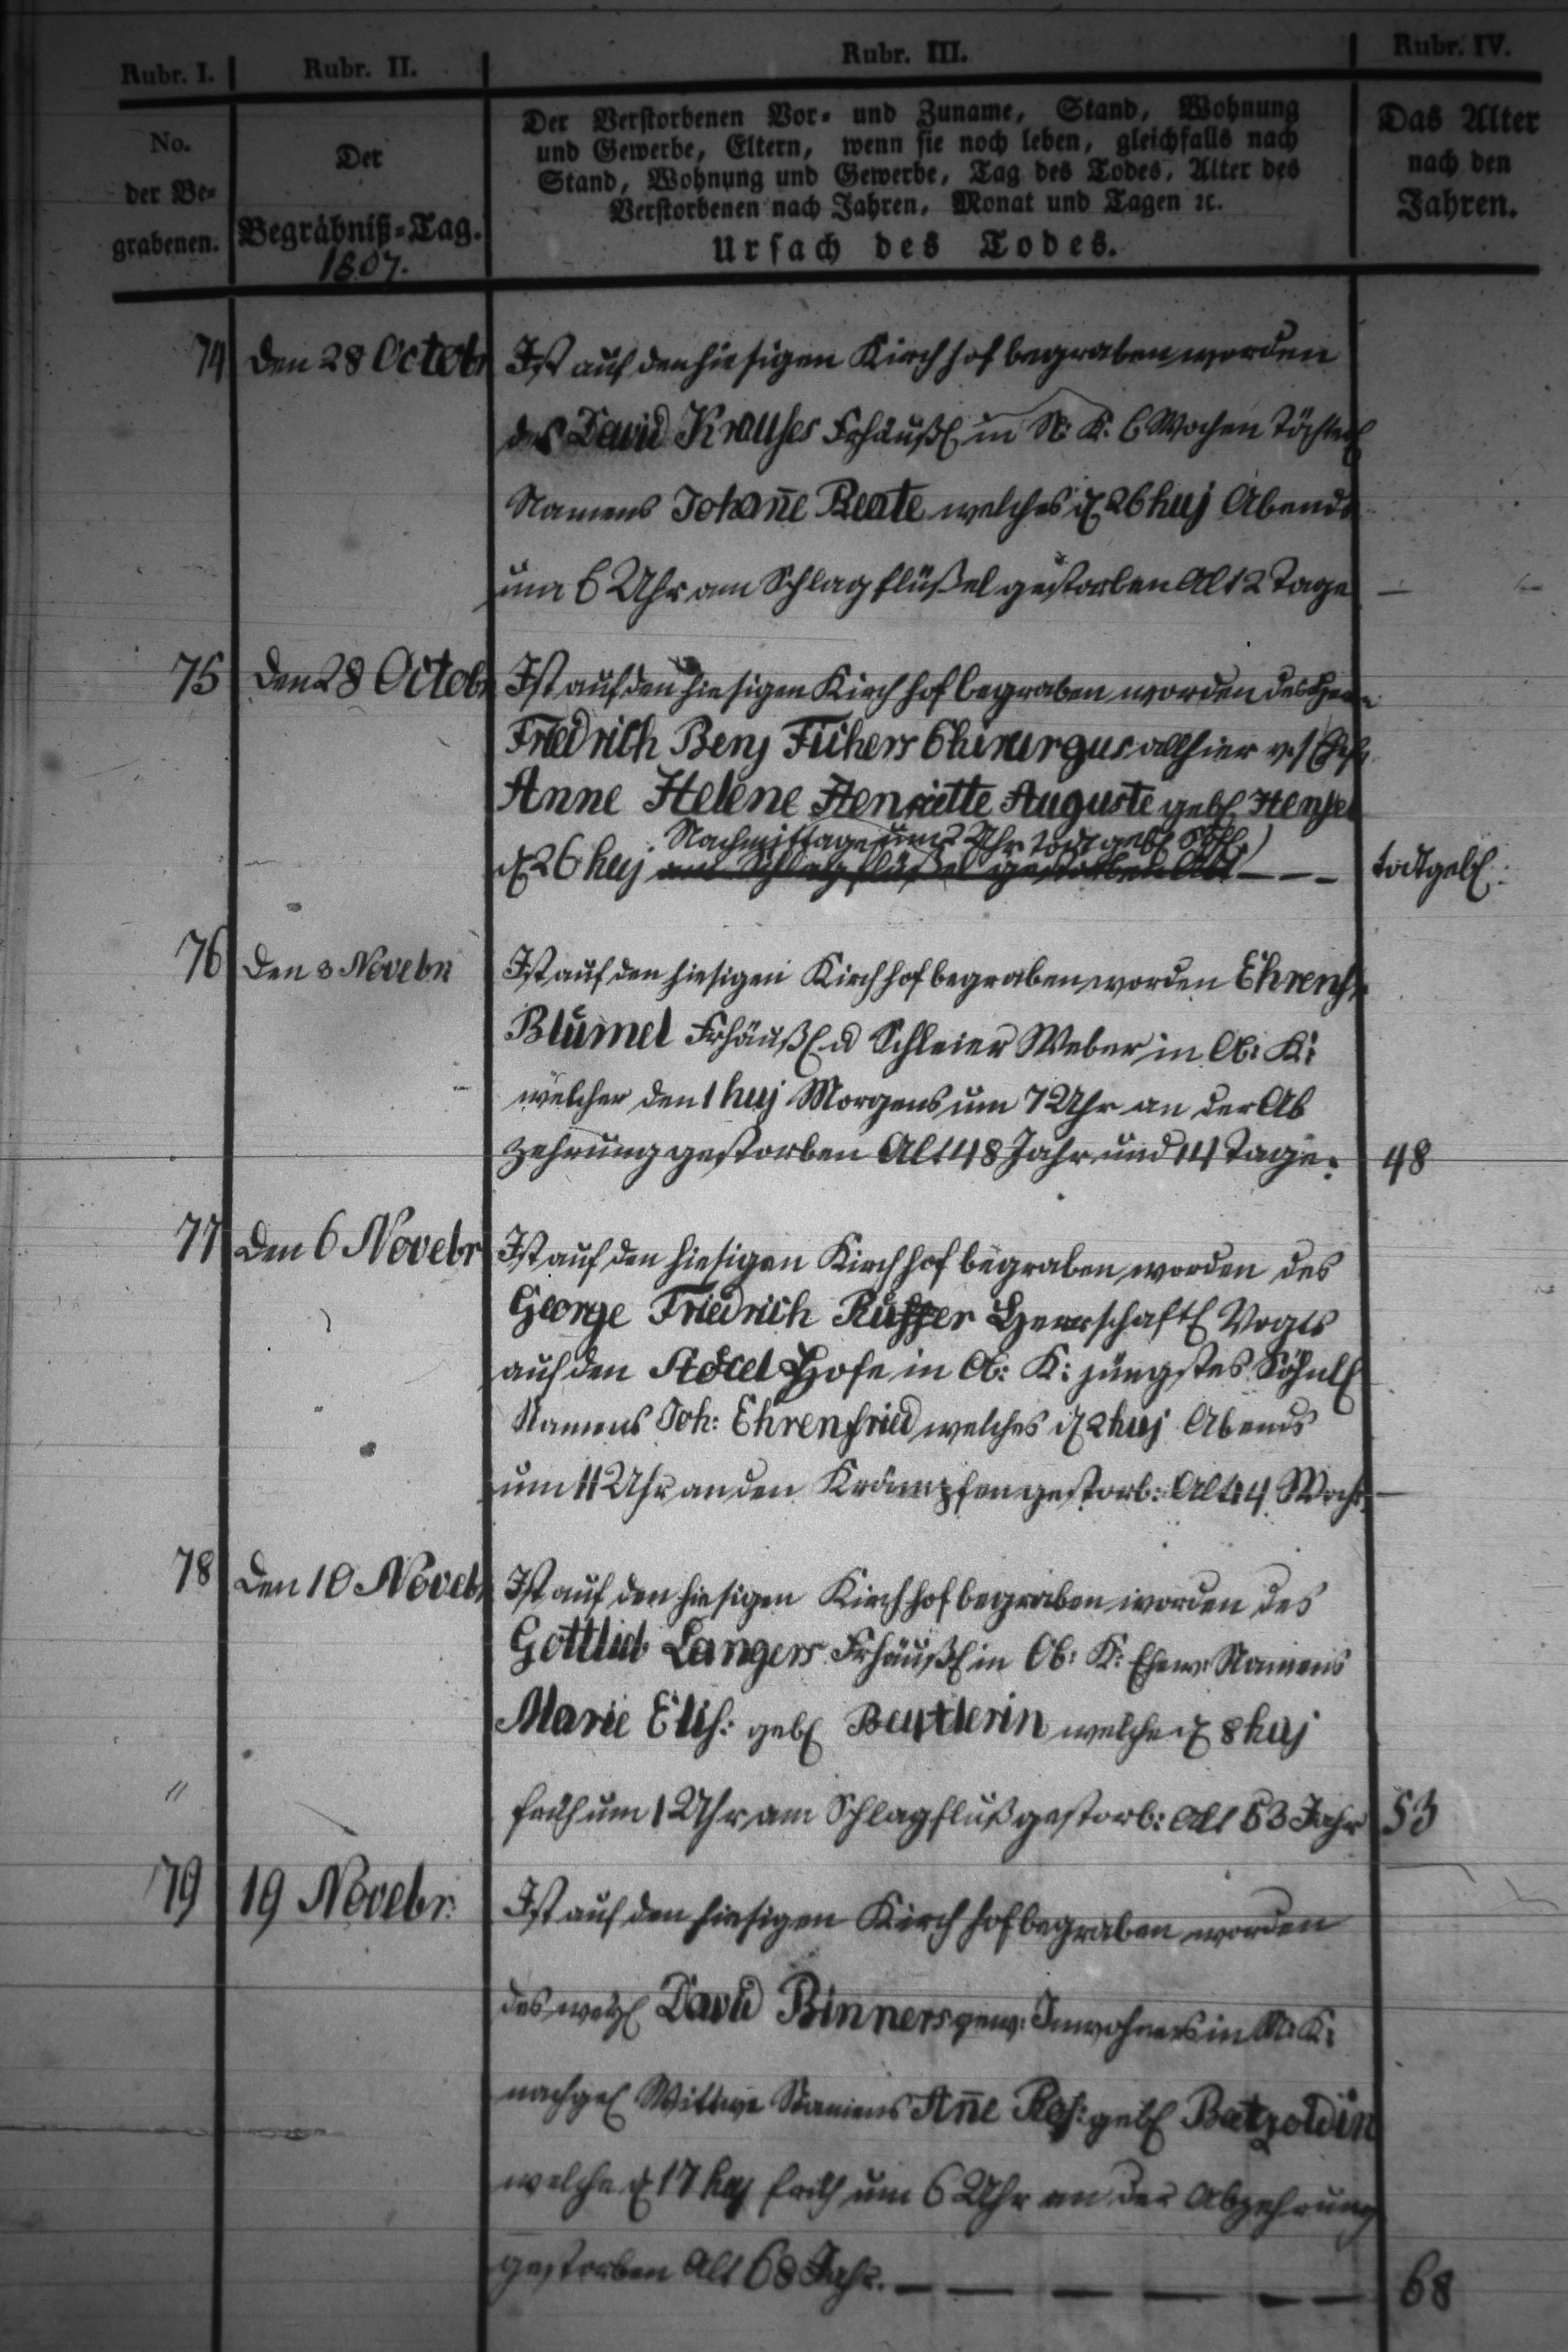 Rubr. I. Rubr. II. Rubr. III. Rubr. IV.
No.
der Be-
grabenen.
Der
Begräbniß-Tag.
1807.
Der Verstorbenen Vor- und Zuname, Stand, Wohnung
und Gewerbe, Eltern, wenn sie noch leben, gleichfalls nach
Stand, Wohnung und Gewerbe, Tag des Todes, Alter des
Verstorbenen nach Jahren, Monat und Tagen ꝛc.
Ursach des Todes.
Das Alter
nach den
Jahren.
74 den 28 Octobr Ist auf den hiesigen Kirchhof begraben worden
des David Krauses Frhäußl in N: K. 6 Wochen Töchterl
Namens Johañe Beate welches d 26 huj Abends
um 6 Uhr am Schlagflüßel gestorben Alt 2 Tage —
75 den 28 Octobr Ist auf den hiesigen Kirchhof begraben worden des Herrn
Friedrich Benj Fichers Chirurgus allhier
Anne Helene Henriette Auguste geb Hensel
Nachmittage um 2 Uhr todtgeb
d 26 huj am Schlagflüßel gestorben Alt — — — todtgeb:
76 den 3 Novebr Ist auf den hiesigen Kirchhof begraben worden Ehrenfr
Blümel Frhäußl u Schleier Weber in Ob: K:
welcher den 1 huj Morgens um 7 Uhr an der Ab
zehrung gestorben Alt 48 Jahr und 14 Tage. 48
77 den 6 Novebr Ist auf den hiesigen Kirchhof begraben worden des
George Friedrich Ruffer Herrschaftl Vogts
auf den Hofe in Ob: K: jüngstes Söhnl
Namens Joh: Ehrenfried welches d 2 huj Abends
um 11 Uhr an den Krämpfen gestorb: Alt 14 Woch —
78 den 10 Novebr Ist auf den hiesigen Kirchhof begraben worden des
Gottlieb Langers Frhäußl in Ob: K: Ehew: Namens
Marie Elis: geb Beutlerin welche d 8 huj
früh um 1 Uhr am Schlagfluß gestorb: Alt 53 Jahr 53
79 19 Novebr. Ist auf den hiesigen Kirchhof begraben worden
des weyl David Binners gew: Inwohners in N: K:
nachgel Wittwe Namens Añe Ros: geb Betzoldin
welche d 17 huj früh um 6 Uhr an der Abzehrung
gestorben Alt 68 Jahr. — — — — — — 68